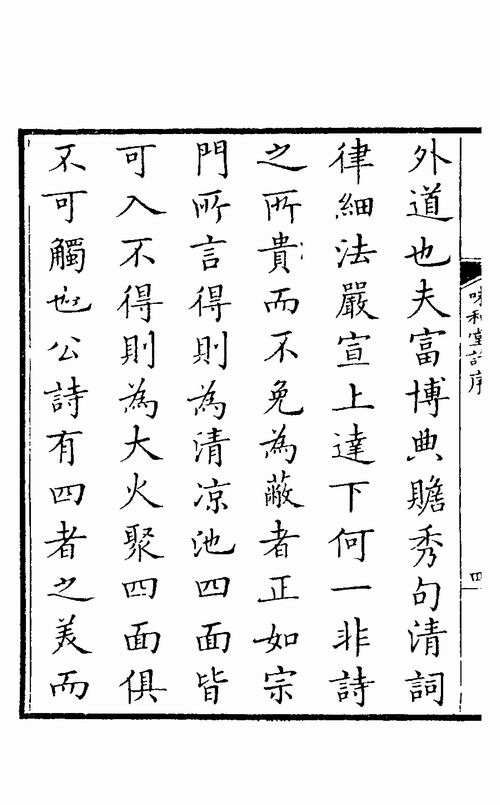 外道也夫富博典贍秀句清詞
律細法嚴宣上達下何一非詩
之所貴而不免為蔽者正如宗
門所言得則為清凉池四面皆
可入不得則為大火聚四面俱
不可觸也公詩有四者之美而
味和堂詩序
四